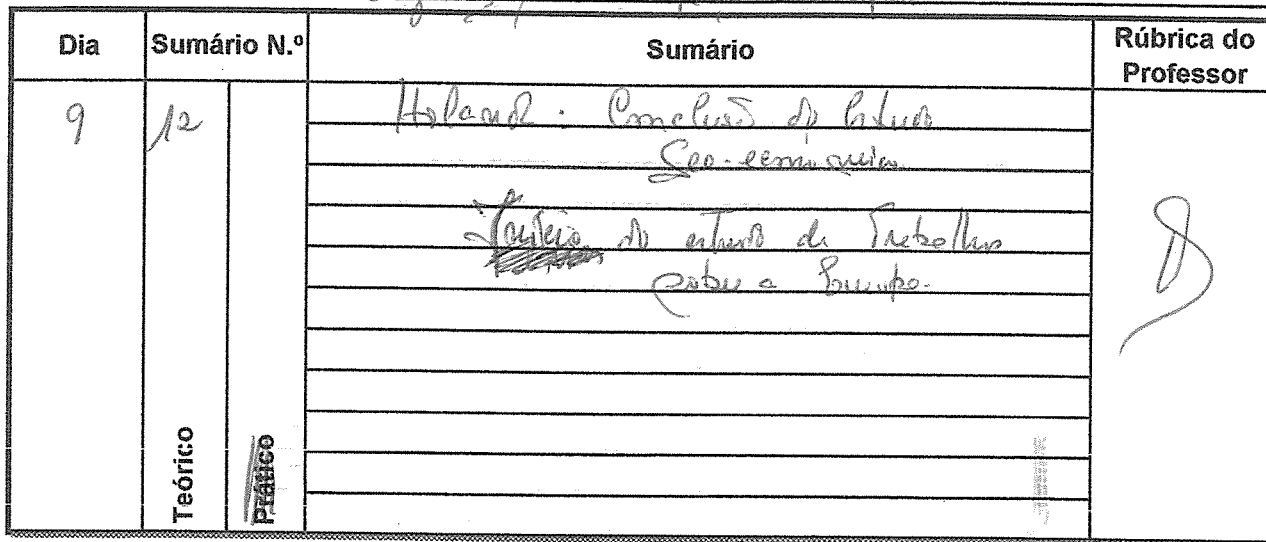 Dia Sumário N.º Sumário Rúbrica do Professor
9 12 Holanda. Conclusão do Estudo
Geo-económico
do estudo de Trabalho
sobre a Europa.
Teórico
Prático